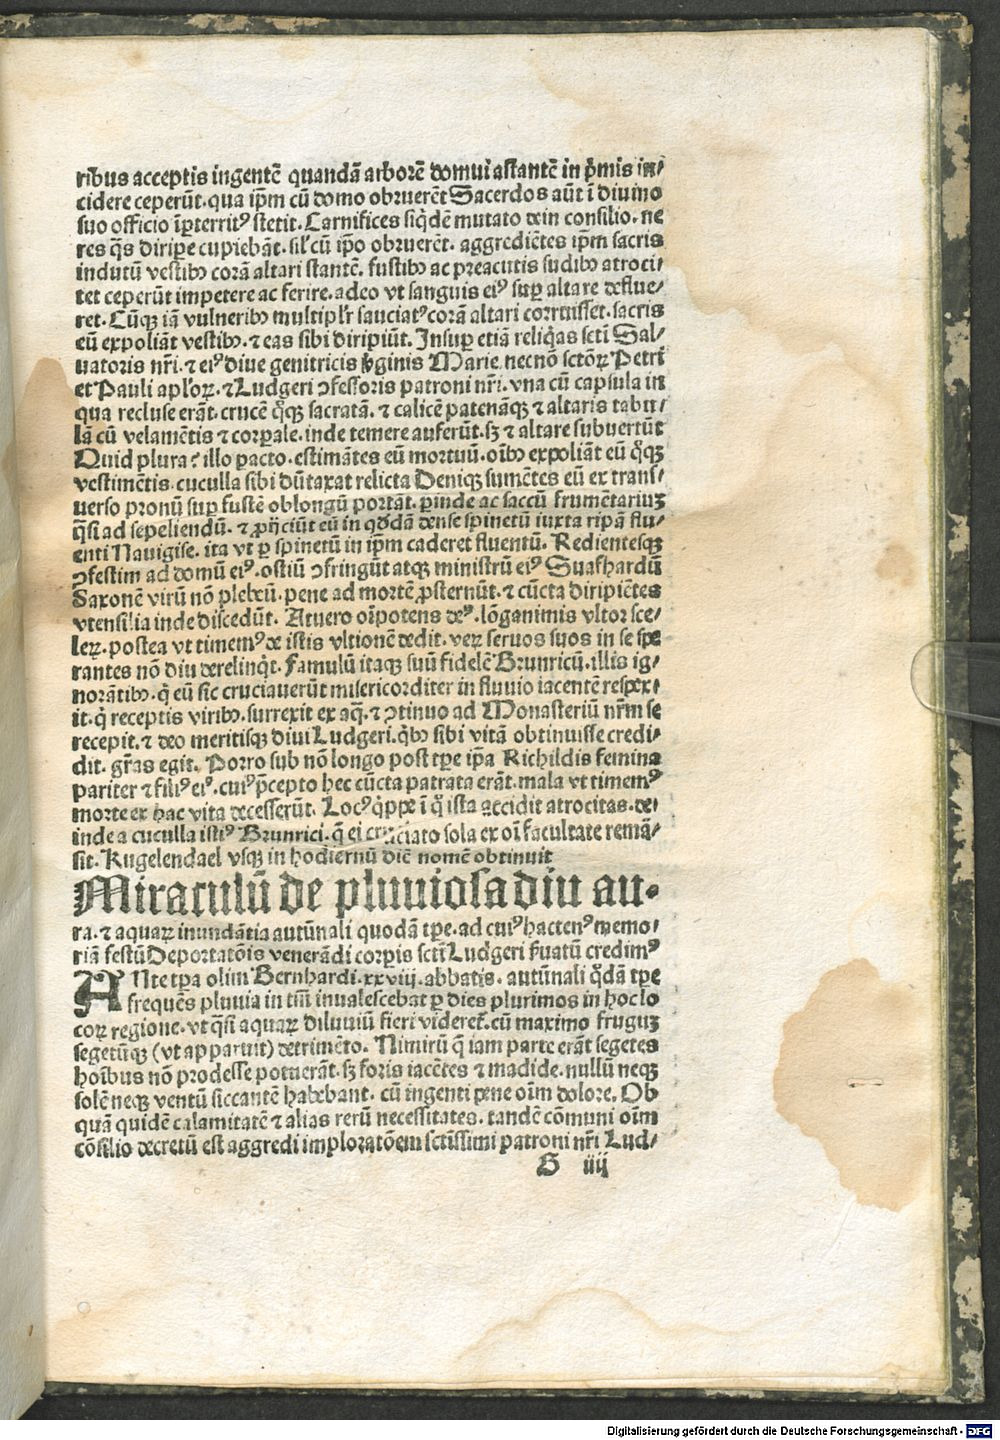 ribus acceptis ingentē quandā arborē domui astantē in p̄mis in⸗
cidere ceperūt. qua ip̄m cū domo obruerēt Sacerdos aūt ī diuino
suo officio īperterritꝰ stetit. Carnifices siq̇dē mutato dein consilio. ne
res q̄s diripe cupiebāt. sil̕ cū ip̄o obruerēt. aggrediētes ip̄m sacris
indutū vestibꝫ corā altari stantē. fustibꝫ ac preacutis sudibꝫ atroci⸗
tet ceperūt impetere ac ferire. adeo vt sanguis eiꝰ suꝑ altare deflue⸗
ret. Cūqꝫ iā vulneribꝫ multipl̕r sauciatꝰ corā altari corruisset. sacris
eū expoliāt vestibꝫ. ⁊ eas sibi diripiūt. Insuꝑ etiā reliq̇as sctī Sal⸗
uatoris nr̄i. ⁊ eiꝰ diue genitricis v̓ginis Marie. necnō sctōꝝ Petri
et Pauli apl̕oꝝ. ⁊ Ludgeri ꝯfessoris patroni nr̄i. vna cū capsula in
qua recluse erāt. crucē q̊qꝫ sacratā. ⁊ calicē patenāqꝫ ⁊ altaris tabu⸗
lā cū velamētis ⁊ corꝑale. inde temere auferūt. sꝫ ⁊ altare subuertūt
Quid plura? illo ꝑacto. estimātes eū mortuū. oībꝫ expoliāt eū q̊qꝫ
vestimētis. cuculla sibi dūtaxat relicta Deniqꝫ sumētes eū ex trans⸗
uerso pronū suꝑ fustē oblongū portāt. ꝑinde ac saccū frumētariuꝫ
q̄si ad sepeliendū. ⁊ ꝓijciūt eū in qd̓dā dense spinetū iuxta ripā flu⸗
enti Nauigise. ita vt ꝑ spinetū in ip̄m caderet fluentū. Redientesqꝫ
ꝯfestim ad domū eiꝰ. ostiū ꝯfringūt atqꝫ ministrū eiꝰ Suafhardū
Saxonē virū nō plebeū. pene ad mortē ꝓsternūt. ⁊ cūcta diripiētes
vtensilia inde discedūt. Atuero oīpotens deꝰ. lōganimis vltor sce⸗
leꝝ. postea vt timemꝰ de istis vltionē dedit. veꝝ seruos suos in se spe
rantes nō diu derelinq̇t. Famulū itaqꝫ suū fidelē Brunricū. illis ig⸗
norātibꝫ. q̇ eū sic cruciauerūt misericorditer in fluuio iacentē respex⸗
it. q̇ receptis viribꝫ. surrexit ex aq̄. ⁊ ꝯtinuo ad Monasteriū nr̄m se
recepit. ⁊ deo meritisqꝫ diui Ludgeri. q̇bꝫ sibi vitā obtinuisse credi⸗
dit. gr̄as egit. Porro sub nō longo post tꝑe ip̄a Richildis femina
pariter ⁊ filiꝰ eiꝰ. cuiꝰ p̄cepto hec cūcta patrata erāt. mala vt timemꝰ
morte ex hac vita decesserūt. Locꝰ q̇ppe ī q̊ ista accidit atrocitas. de⸗
inde a cuculla istiꝰ Brunrici. q̄ ei cruciato sola ex oī facultate remā⸗
sit. Kugelendael vsqꝫ in hodiernū diē nomē obtinuit
Miraculū de pluuiosa diu au⸗
ra. ⁊ aquaꝝ inundātia autūnali quodā tꝑe. ad cuiꝰ hactenꝰ memo⸗
riā festū Deportatōis venerādi corꝑis sctī Ludgeri ẜuatū credimꝰ
ANte tꝑa olim Bernhardi. xxviij. abbatis. autūnali q̊dā tꝑe
frequēs pluuia in tm̄ inualescebat ꝑ dies plurimos in hoc lo
coꝝ regione. vt q̄si aquaꝝ diluuiū fieri videret̃. cū maximo fruguꝫ
segetūqꝫ (vt apparuit) detrimēto. Nimirū q̄ iam parte erāt segetes
hoībus nō prodesse potuerāt. sꝫ foris iacētes ⁊ madide. nullū neqꝫ
solē neqꝫ ventū siccantē habebant. cū ingenti pene oīm dolore. Ob
quā quidē calamitatē ⁊ alias rerū necessitates. tandē cōmuni oīm
cōsilio decretū est aggredi imploratōem sctissimi patroni nr̄i Lud⸗
B iiij
Digitalisierung gefördert durch die Deutsche Forschungsgemeinschaft - DFG